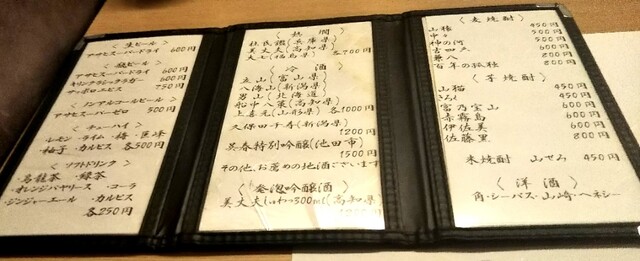 〈生ビール〉
アサヒスーパードライ 600円
〈瓶ビール〉
アサヒスーパードライ 600円
キリンクラシックラガー 600円
サッポロエビス 750円
〈ノンアルコールビール〉
アサヒスーパーゼロ 500円
〈チューハイ〉
レモン・ライム・梅・巨峰
柚子・カルピス 各500円
〈ソフトドリンク〉
・烏龍茶 ・緑茶
・オレンジバヤリース ・コーラ
・ジンジャーエール ・カルピス
各250円
〈熱燗〉
杜氏鑑(兵庫県)
美丈夫(高知県)
大七(福島県) 各700円
〈冷酒〉
立山(富山県)
八海山(新潟県)
男山(北海道)
船中八策(高知県)
上喜元(山形県) 各1000円
久保田千寿(新潟県)
1200円
呉春特別吟醸(池田市)
1500円
その他、お薦めの地酒ございます
〈発泡吟醸酒〉
美丈夫しゅわっ300ml(高知県)
〈麦焼酎〉
山猿 450円
中々 500円
神の河 500円
吉四六 600円
兼八 600円
百年の孤独 800円
〈芋焼酎〉
山猫 450円
さつく 450円
富乃宝山 600円
赤霧島 600円
伊佐美 600円
佐藤黒 800円
米焼酎 山せみ 450円
〈洋酒〉
角・シーバス・山崎・ヘネシー